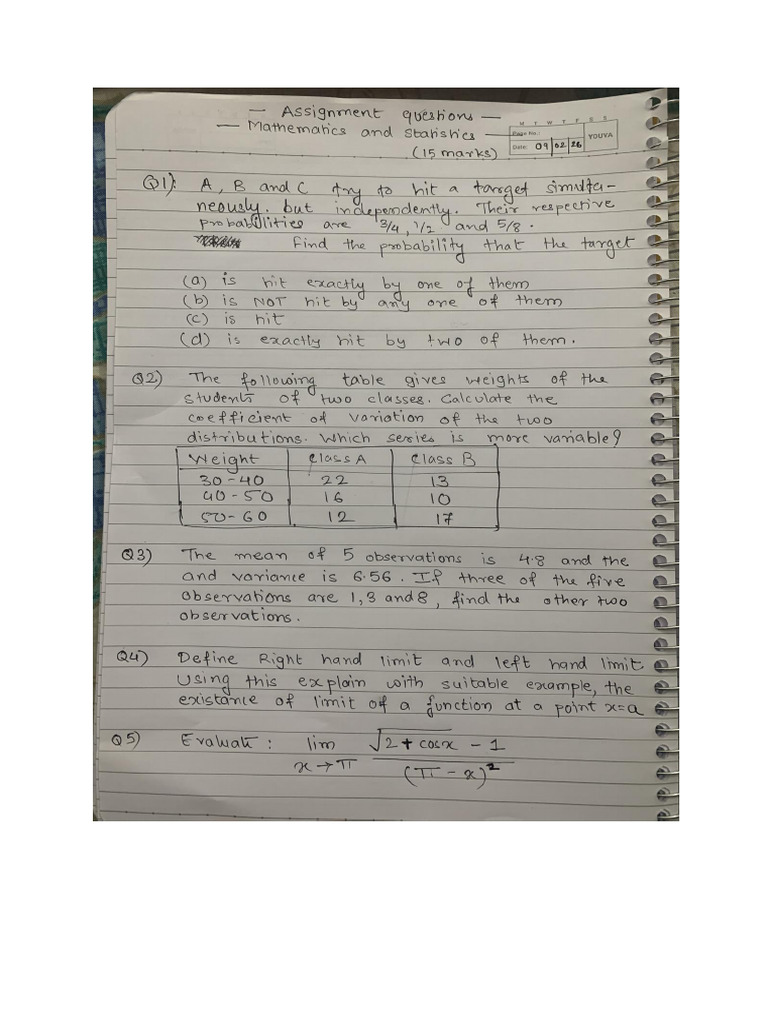 — Assignment questions —
— Mathematics and Statistics —
(15 marks)
M T W T F S S
Page No.:
YOUVA
Date: 09 02 26
Q1): A, B and C try to hit a target simulta-
neously. but independently. Their respective
probabilities are 3/4, 1/2 and 5/8.
Find the probability that the target
(a) is hit exactly by one of them
(b) is NOT hit by any one of them
(c) is hit
(d) is exactly hit by two of them.
Q2) The following table gives weights of the
students of two classes. Calculate the
coefficient of variation of the two
distributions. Which series is more variable?
Weight Class A Class B
30-40 22 13
40-50 16 10
50-60 12 17
Q3) The mean of 5 observations is 4.8 and the
and variance is 6.56. If three of the five
observations are 1, 3 and 8, find the other two
observations.
Q4) Define Right hand limit and left hand limit.
Using this explain with suitable example, the
existance of limit of a function at a point x=a
Q5) Evaluate: lim √2 + cosx - 1
x→π (π - x)²